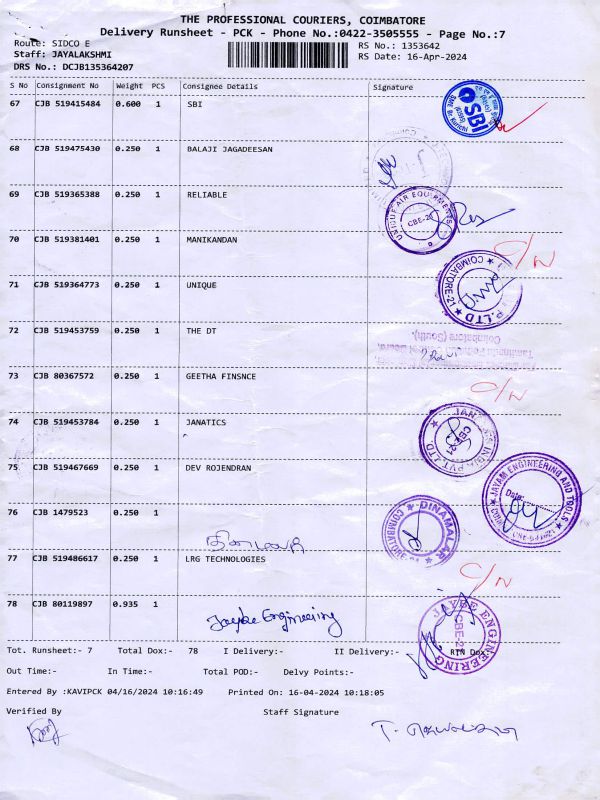 THE PROFESSIONAL COURIERS, COIMBATORE
Delivery Runsheet - PCK - Phone No.:0422-3505555 - Page No.:7
Route: SIDCO E RS No.: 1353642
Staff: JAYALAKSHMI RS Date: 16-Apr-2024
DRS No.: DCJB135364207
S No Consignment No Weight PCS Consignee Details Signature
67 CJB 519415484 0.600 1 SBI
SBI
68 CJB 519475430 0.250 1 BALAJI JAGADEESAN
69 CJB 519365388 0.250 1 RELIABLE
UNIQUE AIR EQUIPMENTS
CBE-21
70 CJB 519381401 0.250 1 MANIKANDAN
C/N
71 CJB 519364773 0.250 1 UNIQUE
P.LTD ★ COIMBATORE-21 ★
72 CJB 519453759 0.250 1 THE DT
Coimbatore (South).
73 CJB 80367572 0.250 1 GEETHA FINSNCE
C/N
74 CJB 519453784 0.250 1 JANATICS
JANATICS INDIA PVT LTD
CBE-21
75 CJB 519467669 0.250 1 DEV ROJENDRAN
JAYAM ENGINEERING AND TOOLS
Date:
76 CJB 1479523 0.250 1
DINAMALAR
COIMBATORE
77 CJB 519486617 0.250 1 LRG TECHNOLOGIES
C/N
78 CJB 80119897 0.935 1
Jaybe Engineering
JAYBE ENGINEERING
CBE-21
Tot. Runsheet:- 7 Total Dox:- 78 I Delivery:- II Delivery:- RTN Dox:-
Out Time:- In Time:- Total POD:- Delvy Points:-
Entered By :KAVIPCK 04/16/2024 10:16:49 Printed On: 16-04-2024 10:18:05
Verified By Staff Signature